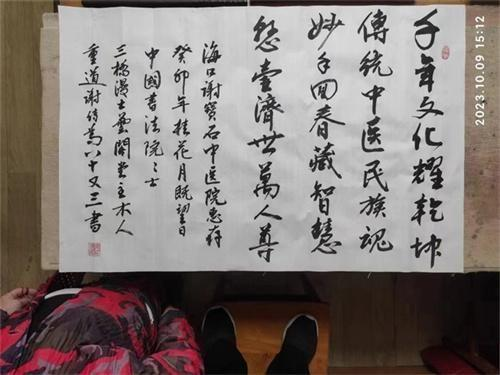 千年文化耀乾坤
傳统中医民族魂
妙手回春藏智慧
悬壶濟世萬人尊
海口谢寳石中医院惠存
癸卯年桂花月既望日
中國書法院院士
三橋漫士藝開堂主木人
重道谢传為八十又三書
2023.10.09 15:12